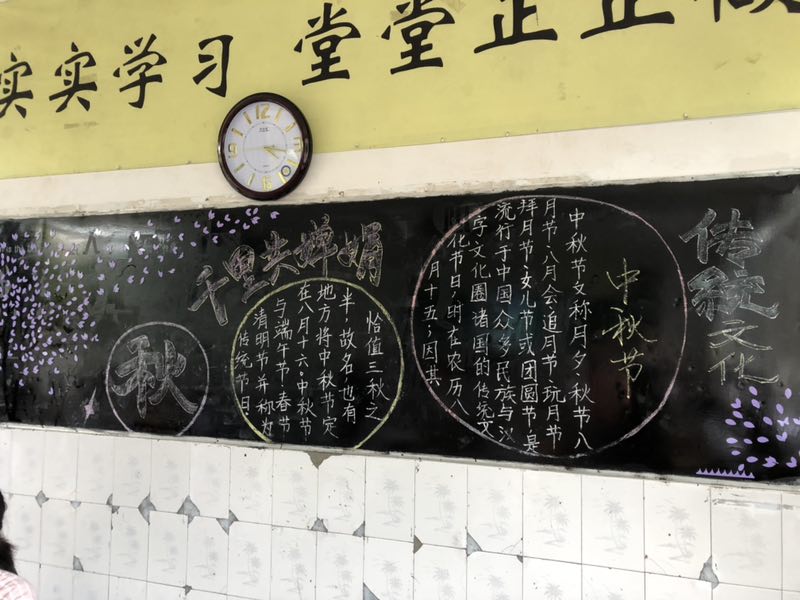 实实学习 堂堂正正做
传統文化
中秋节
中秋节又称月夕、秋节、八
月节、八月会、追月节、玩月节、
拜月节、女儿节或团圆节，是
流行于中国众多民族与汉
字文化圈诸国的传统文
化节日，时在农历八
月十五；因其
千里共婵娟
恰值三秋之
半，故名，也有
地方将中秋节定
在八月十六。中秋节
与端午节、春节、
清明节并称为
传统节日。
秋